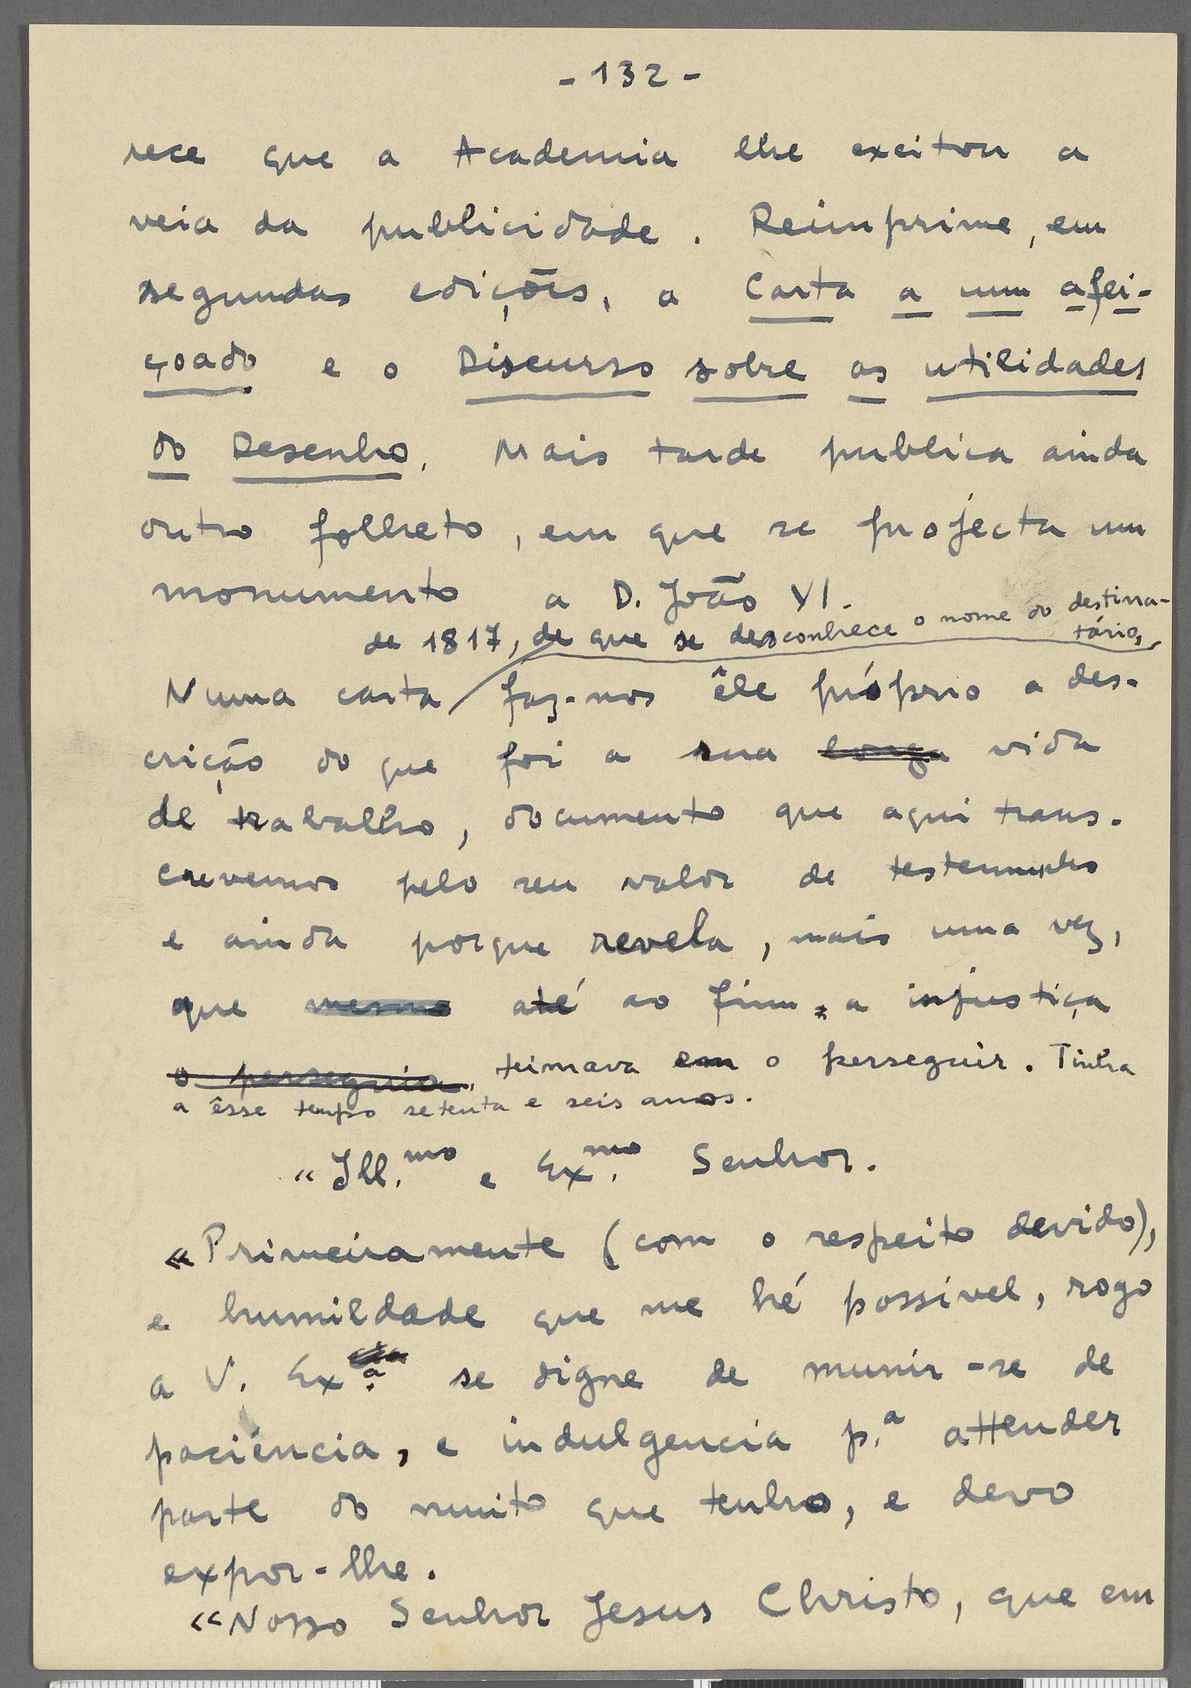 - 132 -
rece que a Academia lhe excitou a
veia da publicidade. Reimprime, em
segundas edições, a Carta a um afei-
çoado e o Discurso sobre as utilidades
do Desenho. Mais tarde publica ainda
outro folheto, em que se projecta um
monumento a D. João VI.
de 1817, de que se desconhece o nome do destina-
tário,
Numa carta faz-nos êle próprio a des-
crição do que foi a sua longa vida
de trabalho, documento que aqui trans-
crevemos pelo seu valor de testemunho
e ainda porque revela, mais uma vez,
que mesmo até ao fim, a injustiça
o perseguia, teimava em o perseguir. Tinha
a êsse tempo setenta e seis anos.
«Ill.mo e Ex.mo Senhor.
«Primeiramente (com o respeito devido),
e humildade que me hé possível, rogo
a V. Ex.a se digne de munir-se de
paciência, e indulgencia p.a attender
parte do muito que tenho, e devo
expor-lhe.
«Nosso Senhor Jesus Christo, que em